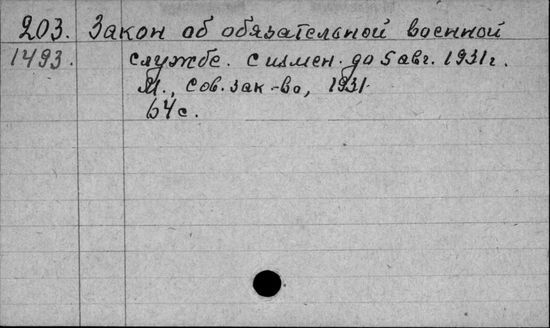 203. Закон об обязательной военной
1493. службе. С измен. до 5 авг. 1931 г.
М., Сов. зак-во, 1931.
64 с.